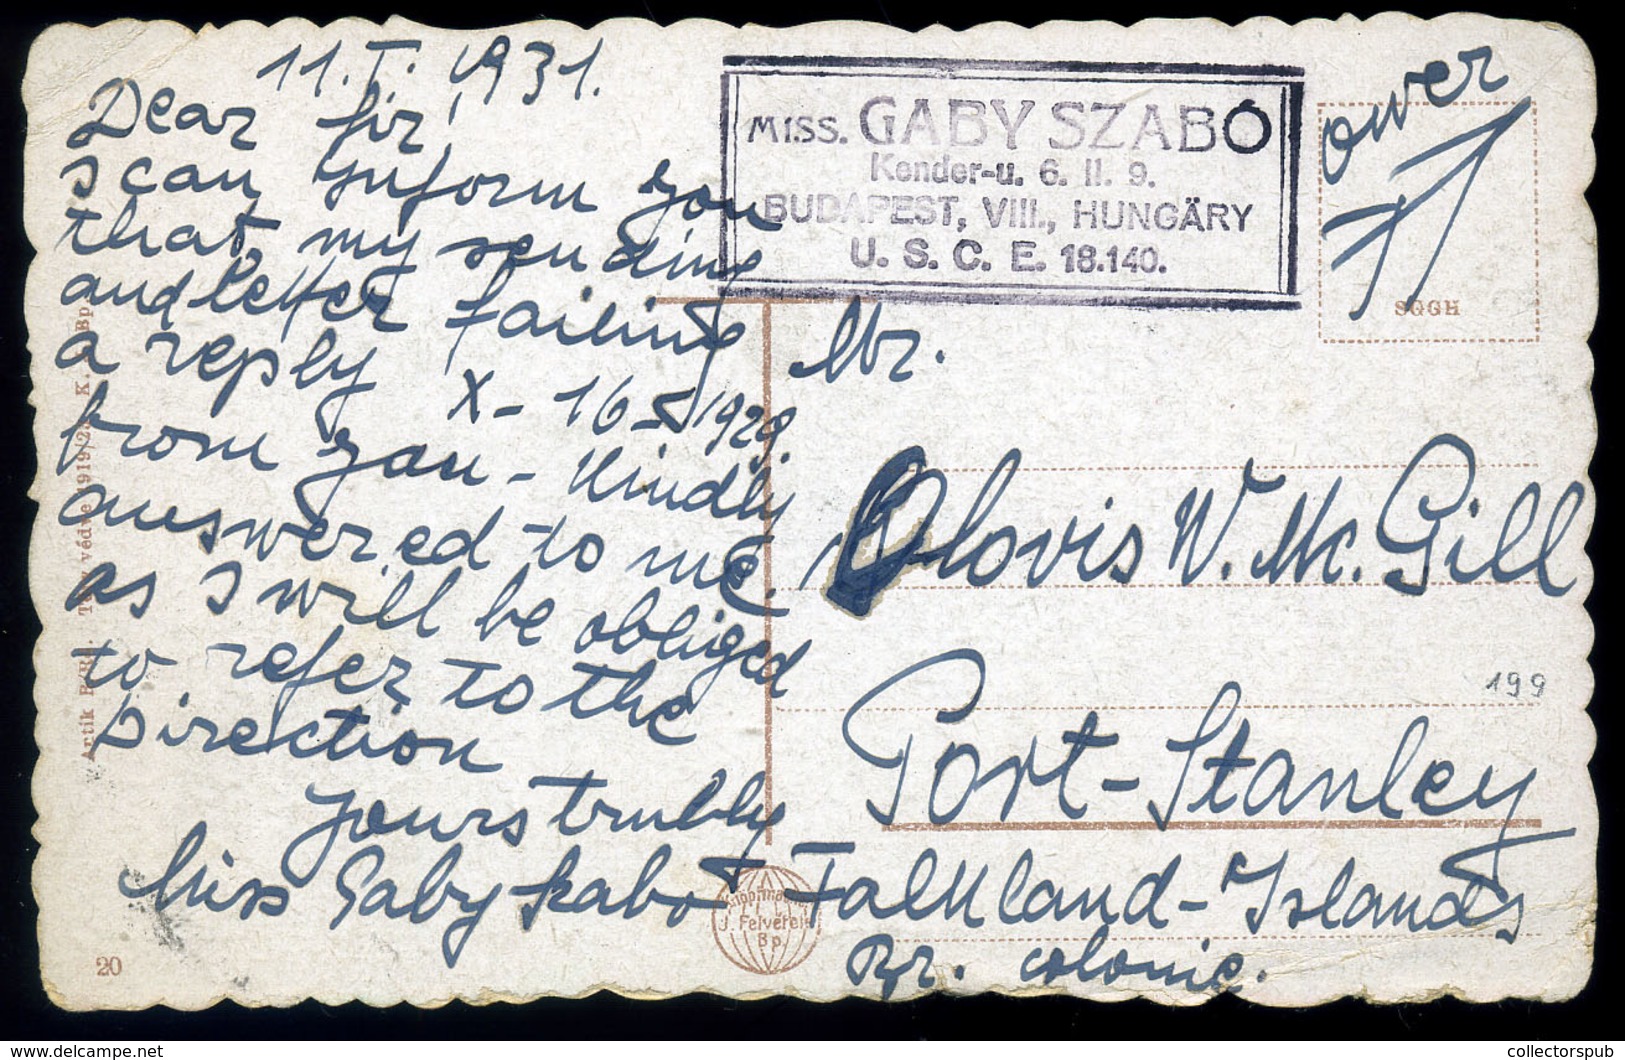 11. I. 1931.
Dear Sir,
I can inform you
that my sending
and letter failing
a reply X - 16 - 1929.
from you - Kindly
answered to me.
as I will be obliged
to refer to the
Direction
Yours trubly
Miss Gaby Szabó
MISS. GABY SZABÓ
Kender-u. 6. II. 9.
BUDAPEST, VIII., HUNGÄRY
U. S. C. E. 18.140.
ower
SGGH
Mr.
Clovis W. Mc. Gill
199
Port-Stanley
Falkland-Islands
Br. colonie.
J. Felvétele
Bp.
20
collectorspub